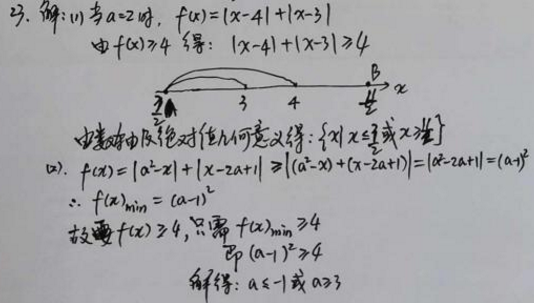 23. 解:(1) 当a=2时, f(x)=|x-4|+|x-3|
由f(x)≥4 得: |x-4|+|x-3|≥4
A B
3/2 3 4 11/2 x
由数轴及绝对值几何意义得:{x|x≤3/2或x≥11/2}
(2). f(x)=|a²-x|+|x-2a+1|≥|(a²-x)+(x-2a+1)|=|a²-2a+1|=(a-1)²
∴ f(x)min=(a-1)²
故要f(x)≥4,只需f(x)min≥4
即(a-1)²≥4
解得:a≤-1或a≥3